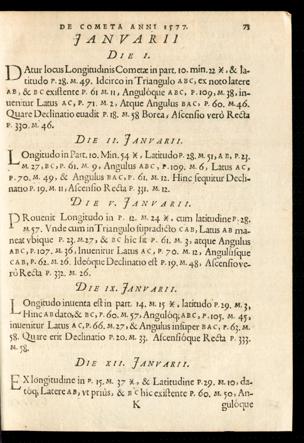 DE COMETA ANNI 1577. 73
JANVARII
DIE I.
DAtur locus Longitudinis Cometæ in part. 10. min. 22 ♓, & la-
titudo P. 28. M. 49. Idcirco in Triangulo ABC, ex noto latere
AB, & BC existente P. 61 M. 11, Angulóque ABC, P. 109, M. 38, in-
uenitur Latus AC, P. 71. M. 2. Atque Angulus BAC, P. 60. M. 46.
Quare Declinatio euadit P. 18. M. 58 Borea, Ascensio verò Recta
P. 330. M. 46.
DIE II. JANVARII.
LOngitudo in Part. 10. Min. 54 ♓, Latitudo P. 28. M. 51, AB, P. 23.
M. 27, BC, P. 61. M. 9, Angulus ABC, P. 109. M. 6, Latus AC,
P. 70, M. 49, & Angulus BAC, P. 61. M. 12. Hinc sequitur Decli-
natio P. 19. M. 11, Ascensio Recta P. 331. M. 12.
DIE V. JANVARII.
PRouenit Longitudo in P. 12. M. 24 ♓. cum latitudine P. 28.
M. 57. Vnde cum in Triangulo supradicto CAB, Latus AB ma-
neat vbique P. 23. M. 27, & BC hic sit P. 61. M. 3, atque Angulus
ABC, P. 107. M. 36, Inuenitur Latus AC, P. 70. M. 12, Angulúsque
CAB, P. 62. M. 26. Ideóque Declinatio est P. 19. M. 48, Ascensio ve-
rò Recta P. 332. M. 26.
DIE IX. JANVARII.
LOngitudo inuenta est in part. 14. M. 15 ♓, latitudo P. 29. M. 3,
Hinc AB dato, & BC, P. 60. M. 57, Angulóq; ABC, P. 105. M. 45,
inuenitur Latus AC, P. 66, M. 27, & Angulus insuper BAC, P. 63. M.
58. Quare erit Declinatio P. 20. M. 33. Ascensióque Recta P. 333.
M. 58.
DIE XII. JANVARII.
EX longitudine in P. 15. M. 37 ♓, & Latitudine P. 29. M. 10, da-
tóq; Latere AB, vt priùs, & BC hic existente P. 60. M. 50, An-
K gulóque